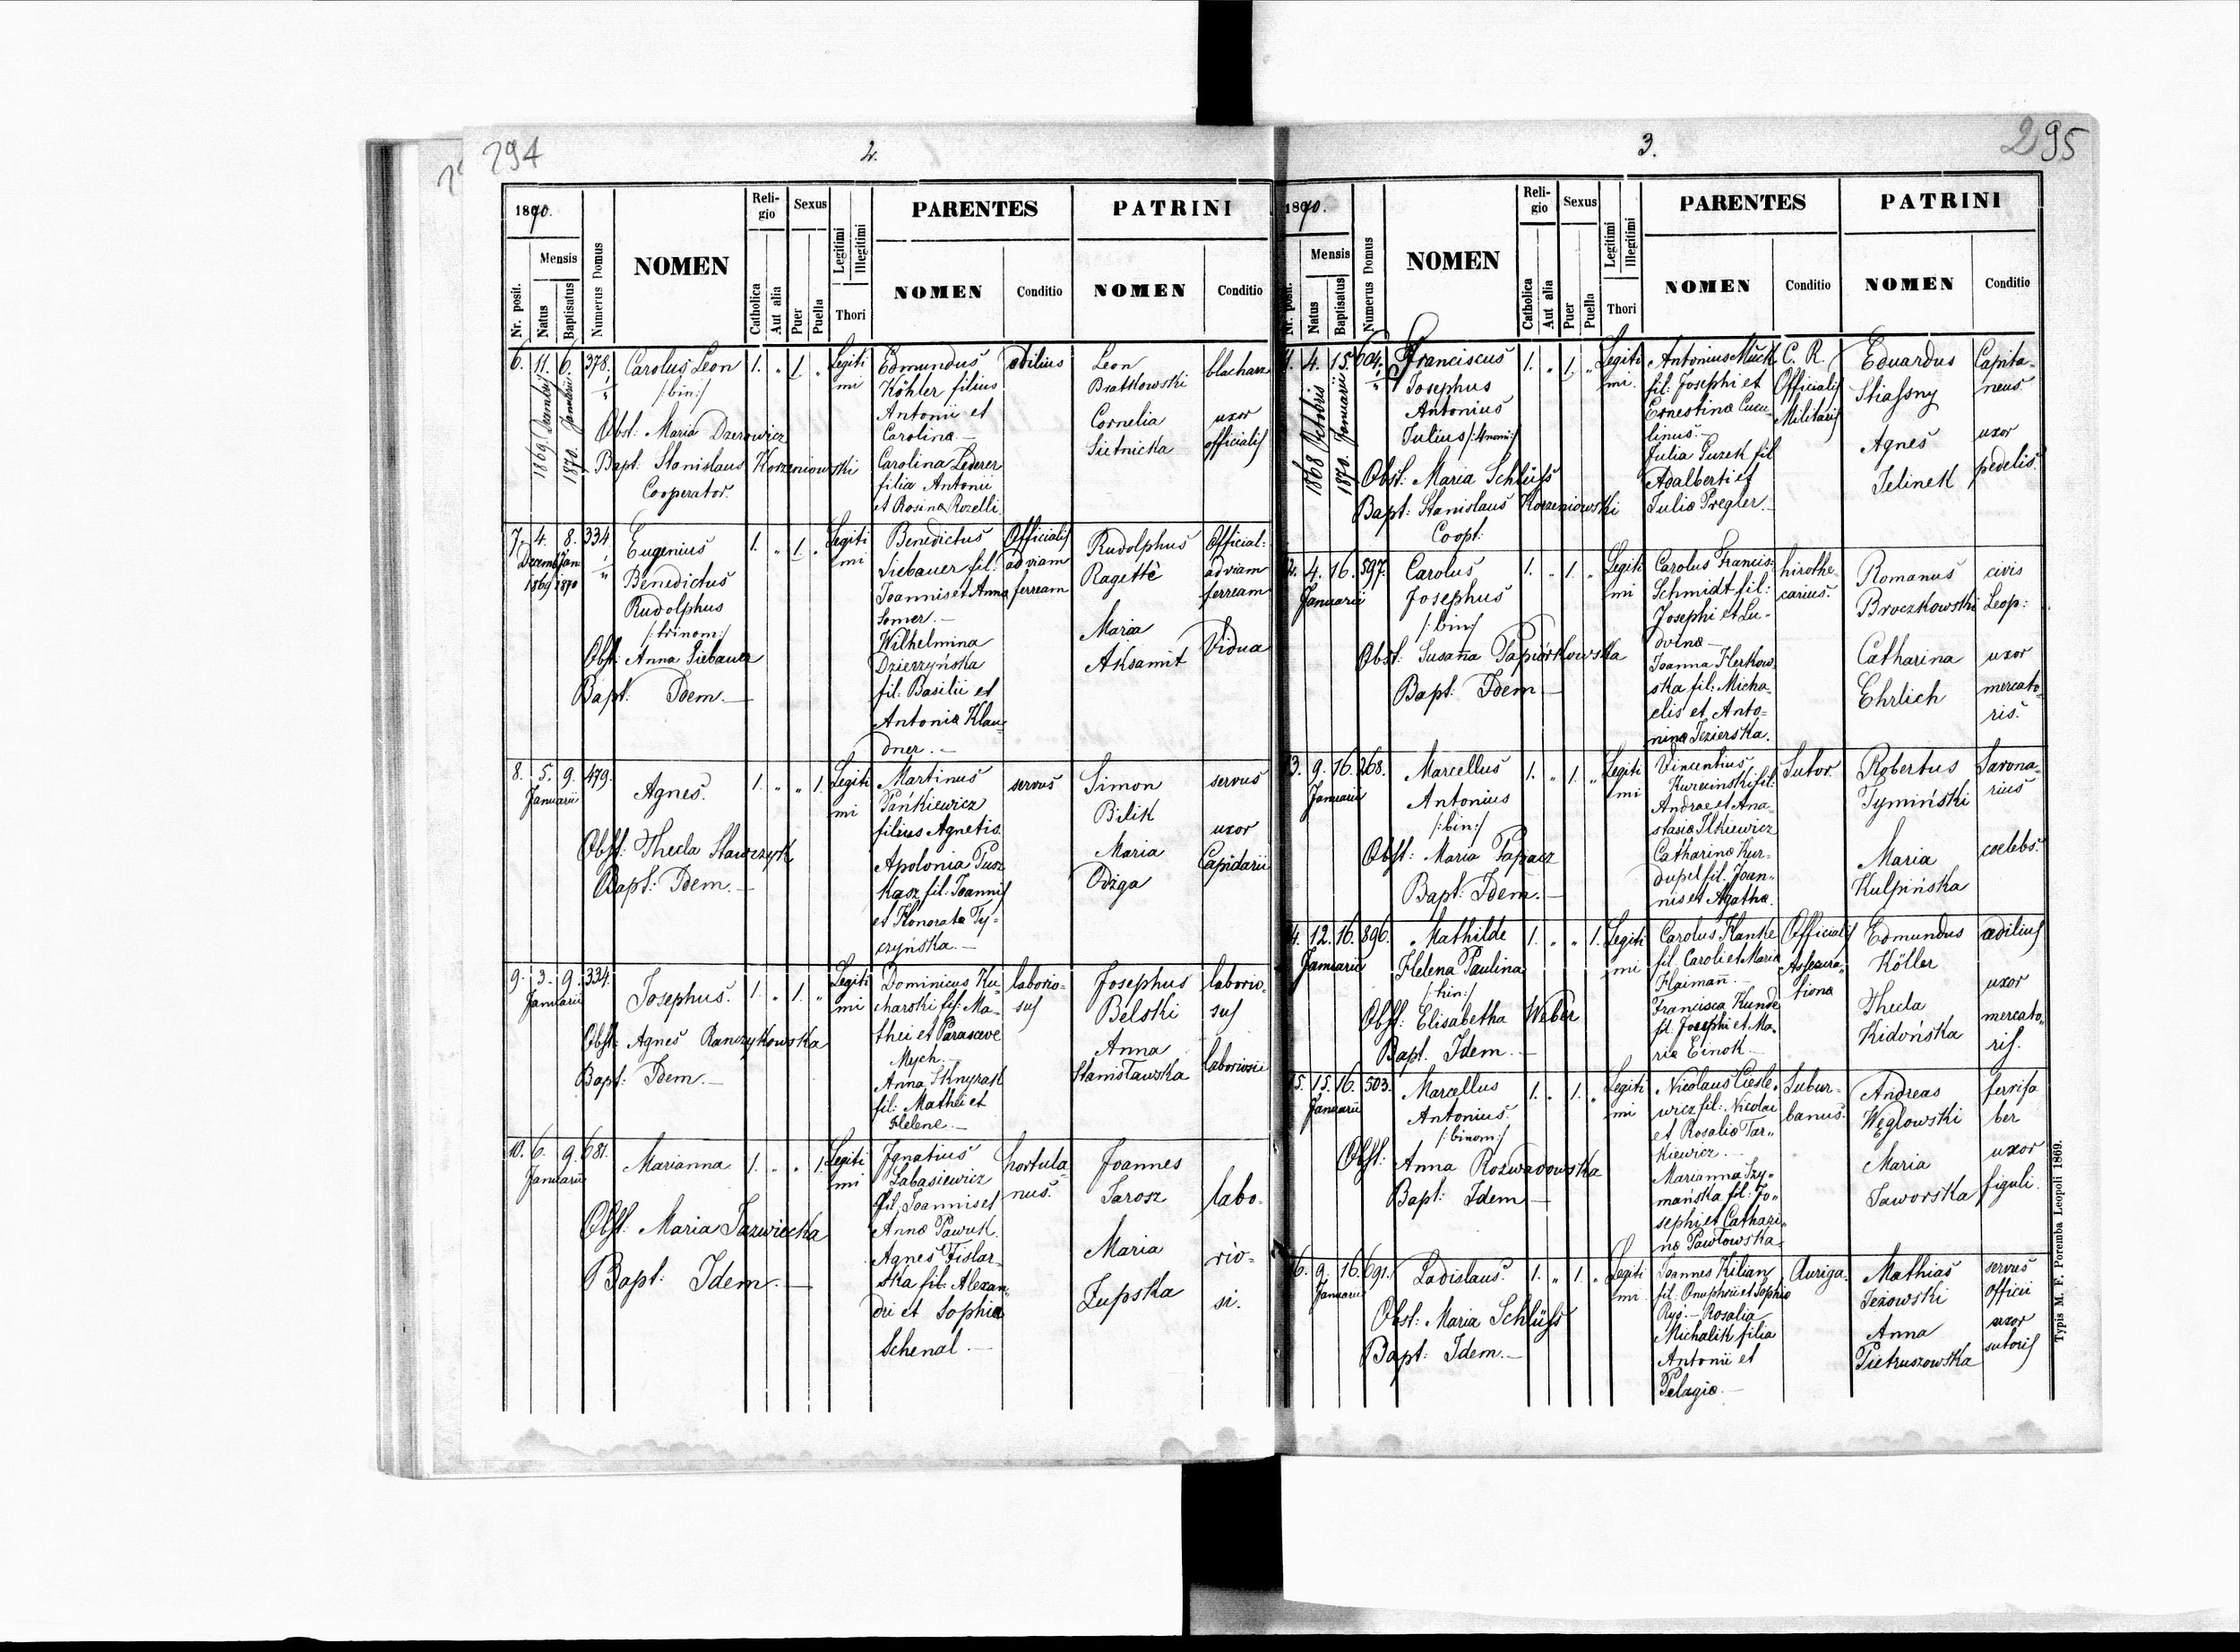 294
2.
1870.
Mensis
Nr. posit.
Natus
Baptisatus
Numerus Domus
NOMEN
Reli-
gio
Catholica
Aut alia
Sexus
Puer
Puella
Legitimi
Illegitimi
Thori
PARENTES
NOMEN
Conditio
PATRINI
NOMEN
Conditio
6. 11. 6. 378.
1869 Decembris
1870. Januarii
Carolus Leon
/:bin:/
Obst: Maria Dzerowicz
Bapt: Stanislaus Korzeniowski
Cooperator.
1. „ 1. „
Legiti
mi
Edmundus
Köhler filius
Antonii et
Carolina —
Carolina Lederer
filia Antonii
et Rosina Rozelli
ædilius
Leon
Bratkowski
Cornelia
Sietnicka
blacharz
uxor
officialis
7. 4. 8. 334
Decemb Jan
1869 1870
Eugenius
Benedictus
Rudolphus
/:trinom:/
Obst: Anna Siebauer
Bapt: Idem. —
1. „ 1. „
Legiti
mi
Benedictus
Siebauer fil.
Joannis et Anna
Somer. —
Wilhelmina
Dzierzyńska
fil: Basilii et
Antonia Klau-
dner. —
Officialis
ad viam
ferream
Rudolphus
Ragetté
Maria
Aksamit
Official:
ad viam
ferream
Vidua
8. 5. 9. 479.
Januarii
Agnes.
Obst: Thecla Stawczyk
Bapt: Idem. —
1. „ „ 1.
Legiti
mi
Martinus
Pańkiewicz
filius Agnetis.
Apolonia Pusz
kasz fil: Joannis
et Honorata Ty-
czyńska. —
servus
Simon
Bilik
Maria
Odzga
servus
uxor
Lapidarii
9. 3. 9. 334.
Januarii
Josephus.
Obst: Agnes Ranczykowska
Bapt: Idem. —
1. „ 1. „
Legiti
mi
Dominicus Ku-
charski fil: Ma-
thei et Parasceve
Mych. —
Anna Sknyrak
fil: Mathei et
Helene. —
laborio-
sus
Josephus
Belski
Anna
Stanisławska
laborio-
sus
laboriosii
10. 6. 9. 681.
Januarii
Marianna
Obst. Maria Jazwiecka
Bapt: Idem. —
1. „ „ 1.
Legiti
mi
Ignatius
Labasiewicz
fil. Joannis et
Anna Pawuk.
Agnes Fislar-
ska fil: Alexan-
dri et Sophia
Schenal. —
hortula-
nus.
Joannes
Jarosz
Maria
Zupska
labo-
rio-
si.
3.
295
1870.
Mensis
Nr. posit.
Natus
Baptisatus
Numerus Domus
NOMEN
Reli-
gio
Catholica
Aut alia
Sexus
Puer
Puella
Legitimi
Illegitimi
Thori
PARENTES
NOMEN
Conditio
PATRINI
NOMEN
Conditio
4. 15. 604.
1868 Octobris
1870. Januarii
Franciscus
Josephus
Antonius
Julius /:4nom:/
Obst: Maria Schlüss
Bapt: Stanislaus Korzeniowski
Coopt:
1. „ 1. „
Legiti
mi.
Antonius Mück
fil: Josephi et
Ernestina Cucu-
linus. —
Julia Guzek fil
Adalberti et
Julia Pregler.
C. R.
Officialis
Militaris
Eduardus
Stiassny
Agnes
Jelinek
Capita-
neus
uxor
pedelis.
2. 4. 16. 597.
Januarii
Carolus
Josephus
/:bin:/
Obst. Susaña Papiórkowska
Bapt: Idem —
1. „ 1. „
Legiti
mi
Carolus Francis:
Schmidt fil:
Josephi et Lu-
dvina —
Joanna Herkow-
ska fil: Micha-
elis et Anto-
nina Jezierska.
hirothe-
carius.
Romanus
Broczkowski
Catharina
Ehrlich
civis
Leop:
uxor
mercato-
ris.
3. 9. 16. 268.
Januarii
Marcellus
Antonius
/:bin:/
Obst: Maria Papacz
Bapt: Idem. —
1. „ 1. „
Legiti
mi
Vincentius
Kurcinski fil:
Andreae et Ana-
stasia Ilkiewicz
Catharina Kur-
dupel fil. Joan-
nis et Agatha.
Sutor.
Robertus
Tymiński
Maria
Kulpińska
Savona-
rius
coelebs.
4. 12. 16. 896.
Januarii
Mathilde
Helena Paulina
/:trin:/
Obst: Elisabetha Weber
Bapt. Idem. —
1. „ „ 1.
Legiti
mi
Carolus Hanke
fil. Caroli et Maria
Haimañ. —
Francisca Kunde
fil. Josephi et Ma-
ria Einok. —
Officialis
Assecura-
tiona
Edmundus
Köller
Thecla
Kidońska
ædilius
uxor
mercato-
ris.
5. 15. 16. 503.
Januarii
Marcellus
Antonius.
/:binom:/
Obst: Anna Rozwadowska
Bapt: Idem —
1. „ 1. „
Legiti
mi
Nicolaus Ciesle-
wicz fil: Nicolai
et Rosalia Tar-
kiewicz. —
Marianna Szy-
mańska fil: Jo-
sephi et Cathari-
na Pawłowska
Subur-
banus.
Andreas
Węglowski
Maria
Jaworska
fervifa
ber
uxor
figuli.
6. 9. 16. 691.
Januarii
Ladislaus.
Obst: Maria Schlüss
Bapt: Idem. —
1. „ 1. „
Legiti
mi
Joannes Kilian
fil: Onuphrii et Sophia
Ryś. — Rosalia
Michalik filia
Antonii et
Pelagia. —
Auriga.
Mathias
Jezowski
Anna
Pietruszowska
servus
officii
uxor
sutoris
Typis M. F. Poremba Leopoli 1869.